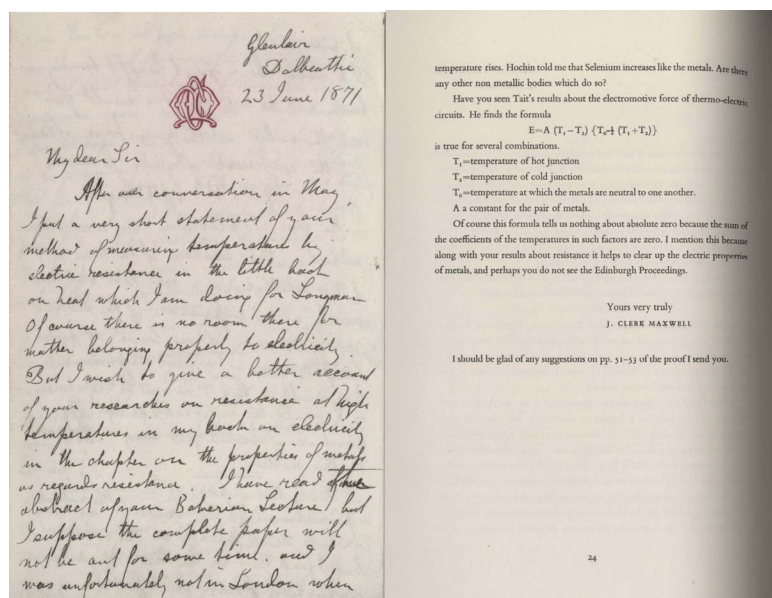 Glenlair
Dalbeattie
23 June 1871
My dear Sir
After our conversation in May,
I put a very short statement of your
method of measuring temperature by
electric resistance in the little book
on heat which I am doing for Longman
Of course there is no room there for
matter belonging properly to electricity.
But I wish to give a better account
of your researches on resistance at high
temperatures in my book on electricity
in the chapter on the properties of metals
as regards resistance. I have read
abstract of your Bakerian Lecture but
I suppose the complete paper will
not be out for some time. and I
was unfortunately not in London when
temperature rises. Hochin told me that Selenium increases like the metals. Are there
any other non metallic bodies which do so?
Have you seen Tait's results about the electromotive force of thermo-electric
circuits. He finds the formula
E=A (T₁−T₂) {T₀−½ (T₁+T₂)}
is true for several combinations.
T₁=temperature of hot junction
T₂=temperature of cold junction
T₀=temperature at which the metals are neutral to one another.
A a constant for the pair of metals.
Of course this formula tells us nothing about absolute zero because the sum of
the coefficients of the temperatures in such factors are zero. I mention this because
along with your results about resistance it helps to clear up the electric properties
of metals, and perhaps you do not see the Edinburgh Proceedings.
Yours very truly
J. CLERK MAXWELL
I should be glad of any suggestions on pp. 51–53 of the proof I send you.
24